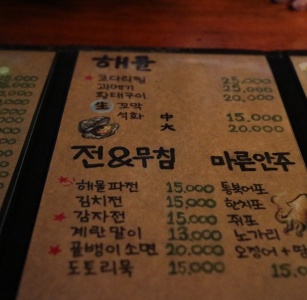 해물
코다리찜 25,000
과메기 25,000
황태구이 20,000
生 꼬막
석화 中 15,000
大 20,000
전&무침 마른안주
해물파전 15,000 통북어포
김치전 15,000 한치포
감자전 15,000 쥐포
계란말이 13,000 노가리
골뱅이소면 20,000 오징어+땅
도토리묵 15,000 15,0